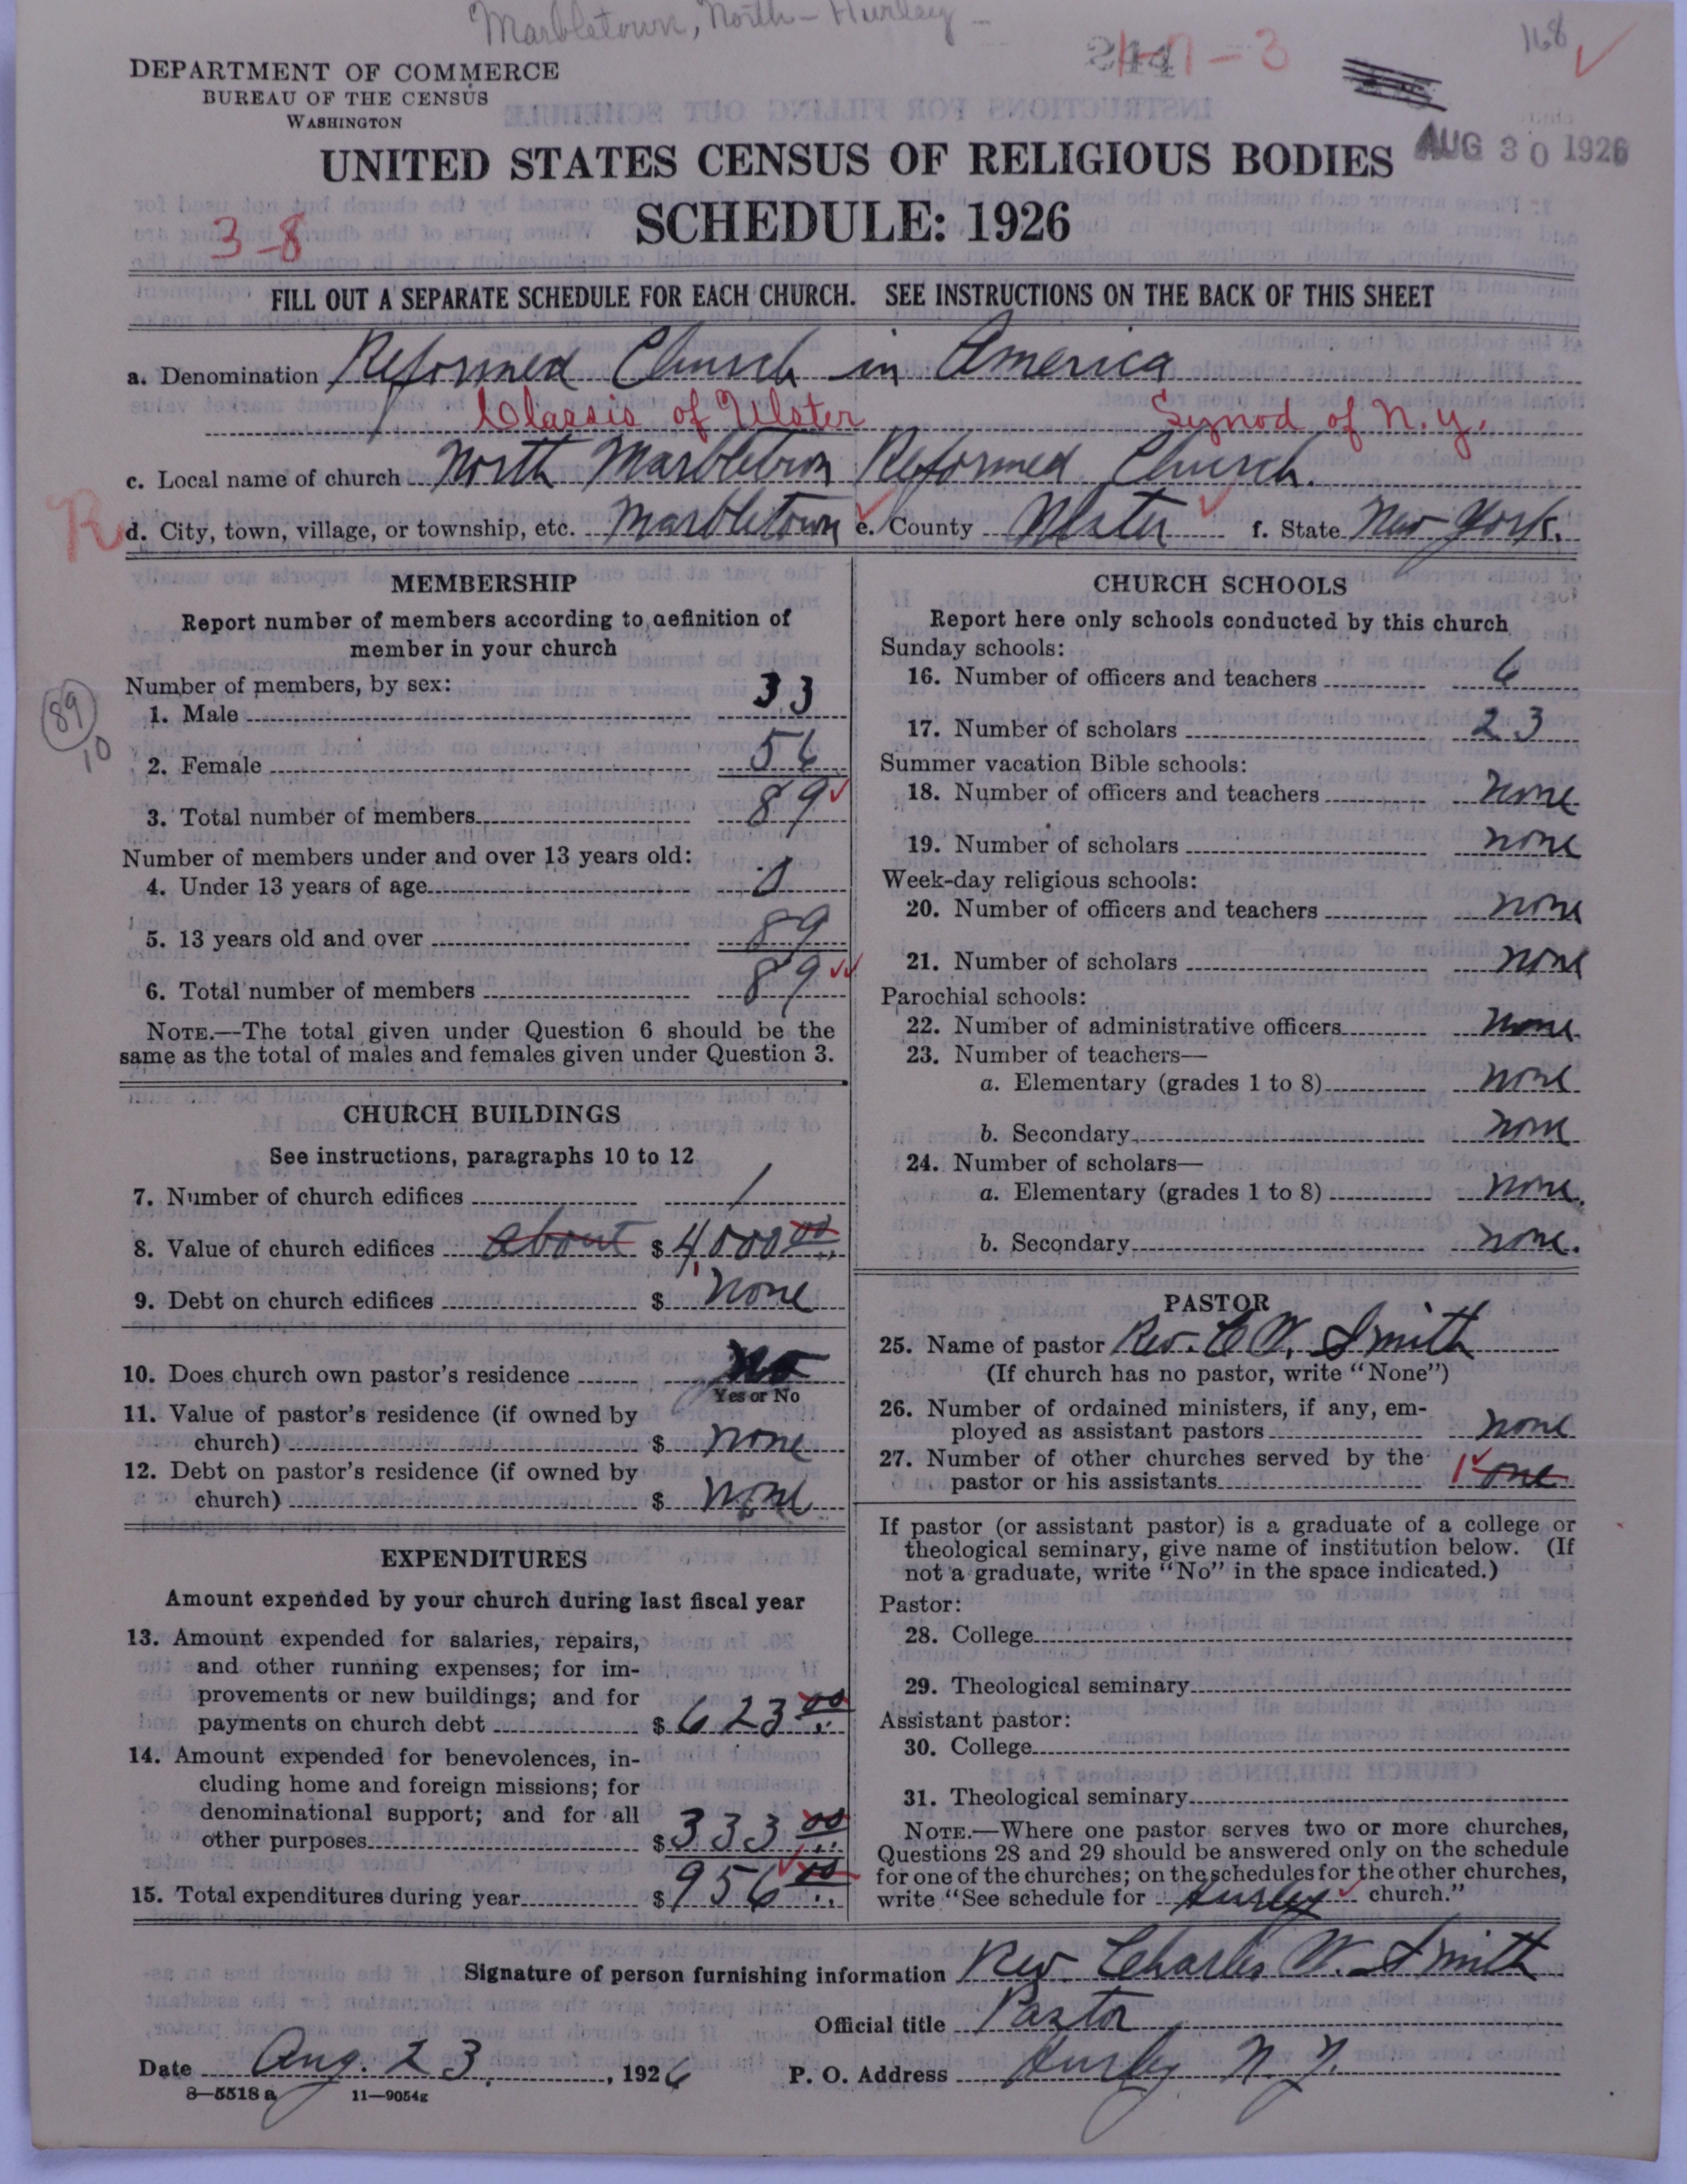 Marbletown, North - Hurley -
244
1-7-3
168
DEPARTMENT OF COMMERCE
BUREAU OF THE CENSUS
WASHINGTON
AUG 30 1926
UNITED STATES CENSUS OF RELIGIOUS BODIES
SCHEDULE: 1926
3-8
FILL OUT A SEPARATE SCHEDULE FOR EACH CHURCH. SEE INSTRUCTIONS ON THE BACK OF THIS SHEET
a. Denomination Reformed Church in America
Classis of Ulster Synod of N.Y.
c. Local name of church North Marbletown Reformed Church.
R
d. City, town, village, or township, etc. Marbletown e. County Ulster f. State New York.
MEMBERSHIP
Report number of members according to definition of
member in your church
Number of members, by sex:
1. Male 33
89
10
2. Female 56
3. Total number of members 89
Number of members under and over 13 years old:
4. Under 13 years of age 0
5. 13 years old and over 89
6. Total number of members 89
NOTE.—The total given under Question 6 should be the
same as the total of males and females given under Question 3.
CHURCH BUILDINGS
See instructions, paragraphs 10 to 12
7. Number of church edifices 1
8. Value of church edifices about $ 4,000 00
9. Debt on church edifices $ none
10. Does church own pastor's residence No
Yes or No
11. Value of pastor's residence (if owned by
church) $ none
12. Debt on pastor's residence (if owned by
church) $ none
EXPENDITURES
Amount expended by your church during last fiscal year
13. Amount expended for salaries, repairs,
and other running expenses; for im-
provements or new buildings; and for
payments on church debt $ 623 00
14. Amount expended for benevolences, in-
cluding home and foreign missions; for
denominational support; and for all
other purposes $ 333 00
15. Total expenditures during year $ 956 00
CHURCH SCHOOLS
Report here only schools conducted by this church
Sunday schools:
16. Number of officers and teachers 6
17. Number of scholars 23
Summer vacation Bible schools:
18. Number of officers and teachers none
19. Number of scholars none
Week-day religious schools:
20. Number of officers and teachers none
21. Number of scholars none
Parochial schools:
22. Number of administrative officers none
23. Number of teachers—
a. Elementary (grades 1 to 8) none
b. Secondary none
24. Number of scholars—
a. Elementary (grades 1 to 8) none.
b. Secondary none.
PASTOR
25. Name of pastor Rev. C. W. Smith
(If church has no pastor, write "None")
26. Number of ordained ministers, if any, em-
ployed as assistant pastors none
27. Number of other churches served by the
pastor or his assistants 1 one
If pastor (or assistant pastor) is a graduate of a college or
theological seminary, give name of institution below. (If
not a graduate, write "No" in the space indicated.)
Pastor:
28. College
29. Theological seminary
Assistant pastor:
30. College
31. Theological seminary
NOTE.—Where one pastor serves two or more churches,
Questions 28 and 29 should be answered only on the schedule
for one of the churches; on the schedules for the other churches,
write "See schedule for Hurley church."
Signature of person furnishing information Rev. Charles W. Smith
Official title Pastor
Date Aug. 23, 1926 P. O. Address Hurley N.Y.
8—5518 a 11—9054g